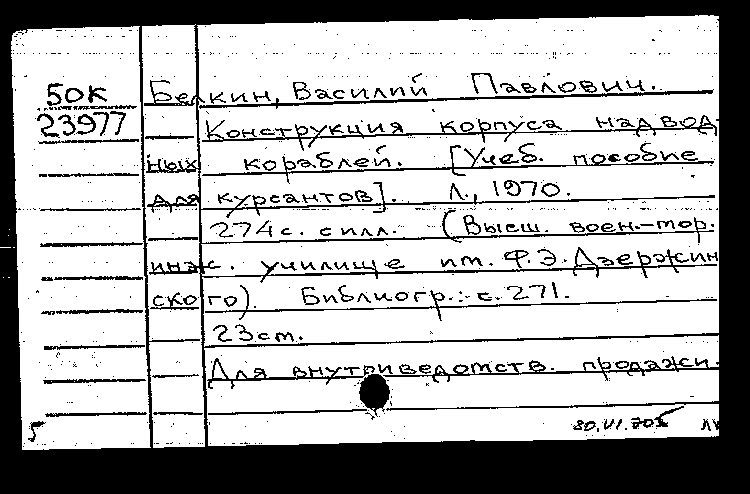 50К Белкин, Василий Павлович.
23977 Конструкция корпуса надвод-
ных кораблей. [Учеб. пособие
для курсантов]. Л., 1970.
274с. с илл. (Высш. воен.-мор.
инж. училище им. Ф.Э.Дзержин
ского). Библиогр.: с.271.
23см.
Для внутриведомств. продажи.
5